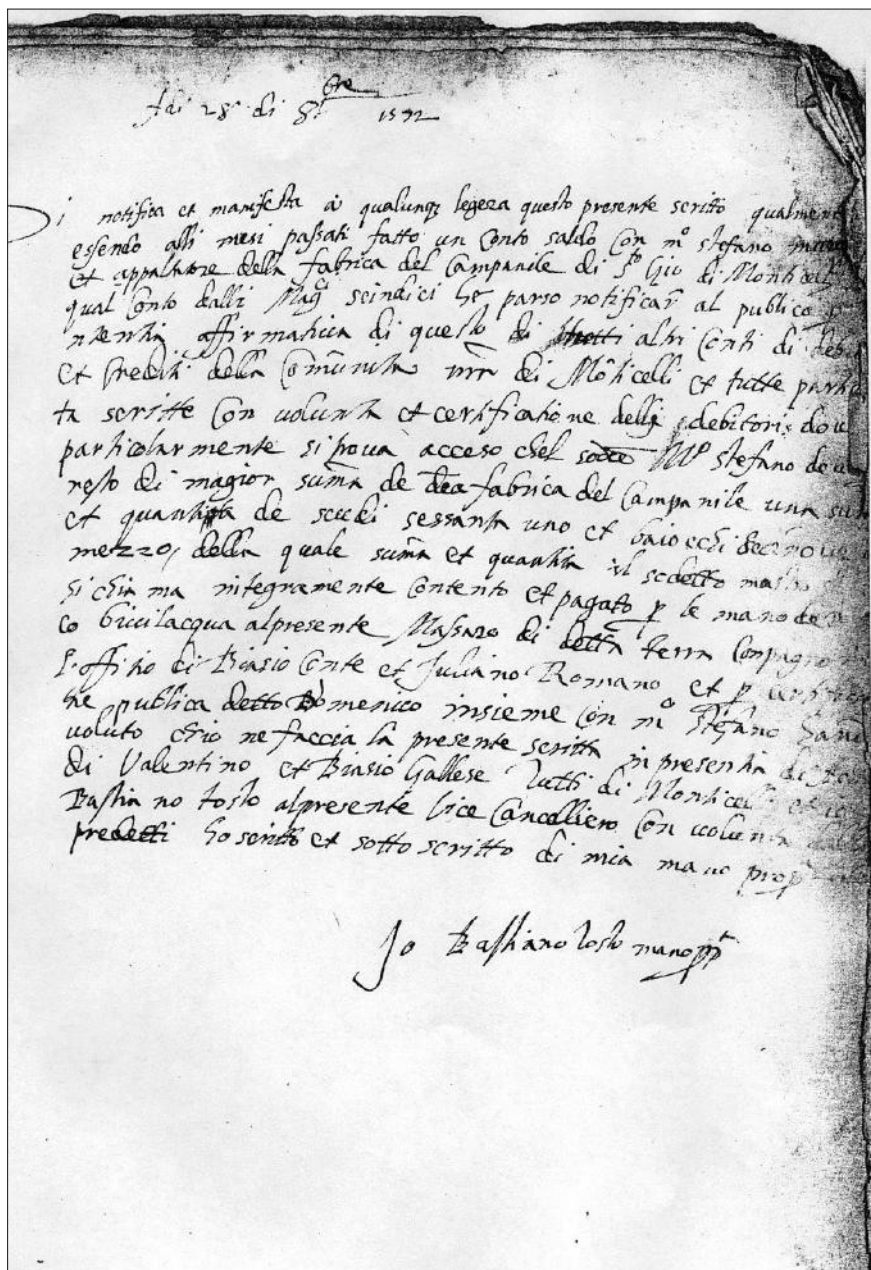 Adi 28 di 8bre 1572
i notifica et manifesta à qualunq legera questo presente scritto qualmente
essendo alli mesi passati fatto un Conto saldo con m.o stefano
et appaltatore della fabrica del Campanile di S.to Gio di Monticelli
qual Conto dalli Mag.ci scindici he parso notificar al publico p
affirmativa di questo di tutti altri Conti di debiti
et Crediti della Com̃unita nr̃a di Mõticelli et tutte partita
ta scritte Con volunta et certificatione delli debitori dove
particolarmente si prova acceso chel M.o stefano
resto di magior sum̃a de fabrica del Campanile una sum
et quantita de scudi sessanta uno et baiochi
mezzo, della quale sum̃a et quantita il sodetto mastro
si chiama integramente Contento et pagato p le mano de
co bivilacqua alpresente Massaro di detta terra Conpagno
l'offitio di Biasio Conte et Juliano Romano et p
ne publica detto Domenico insieme con m.o Stefano hanno
voluto chio ne faccia la presente scritta in presentia di
di Valentino et Biasio Gallese tutti di Monticelli et
Bastiano tosto alpresente Vice Cancelliero Con volunta delli
predetti ho scritto et sotto scritto di mia mano prop
Jo Bastiano tosto mano pp